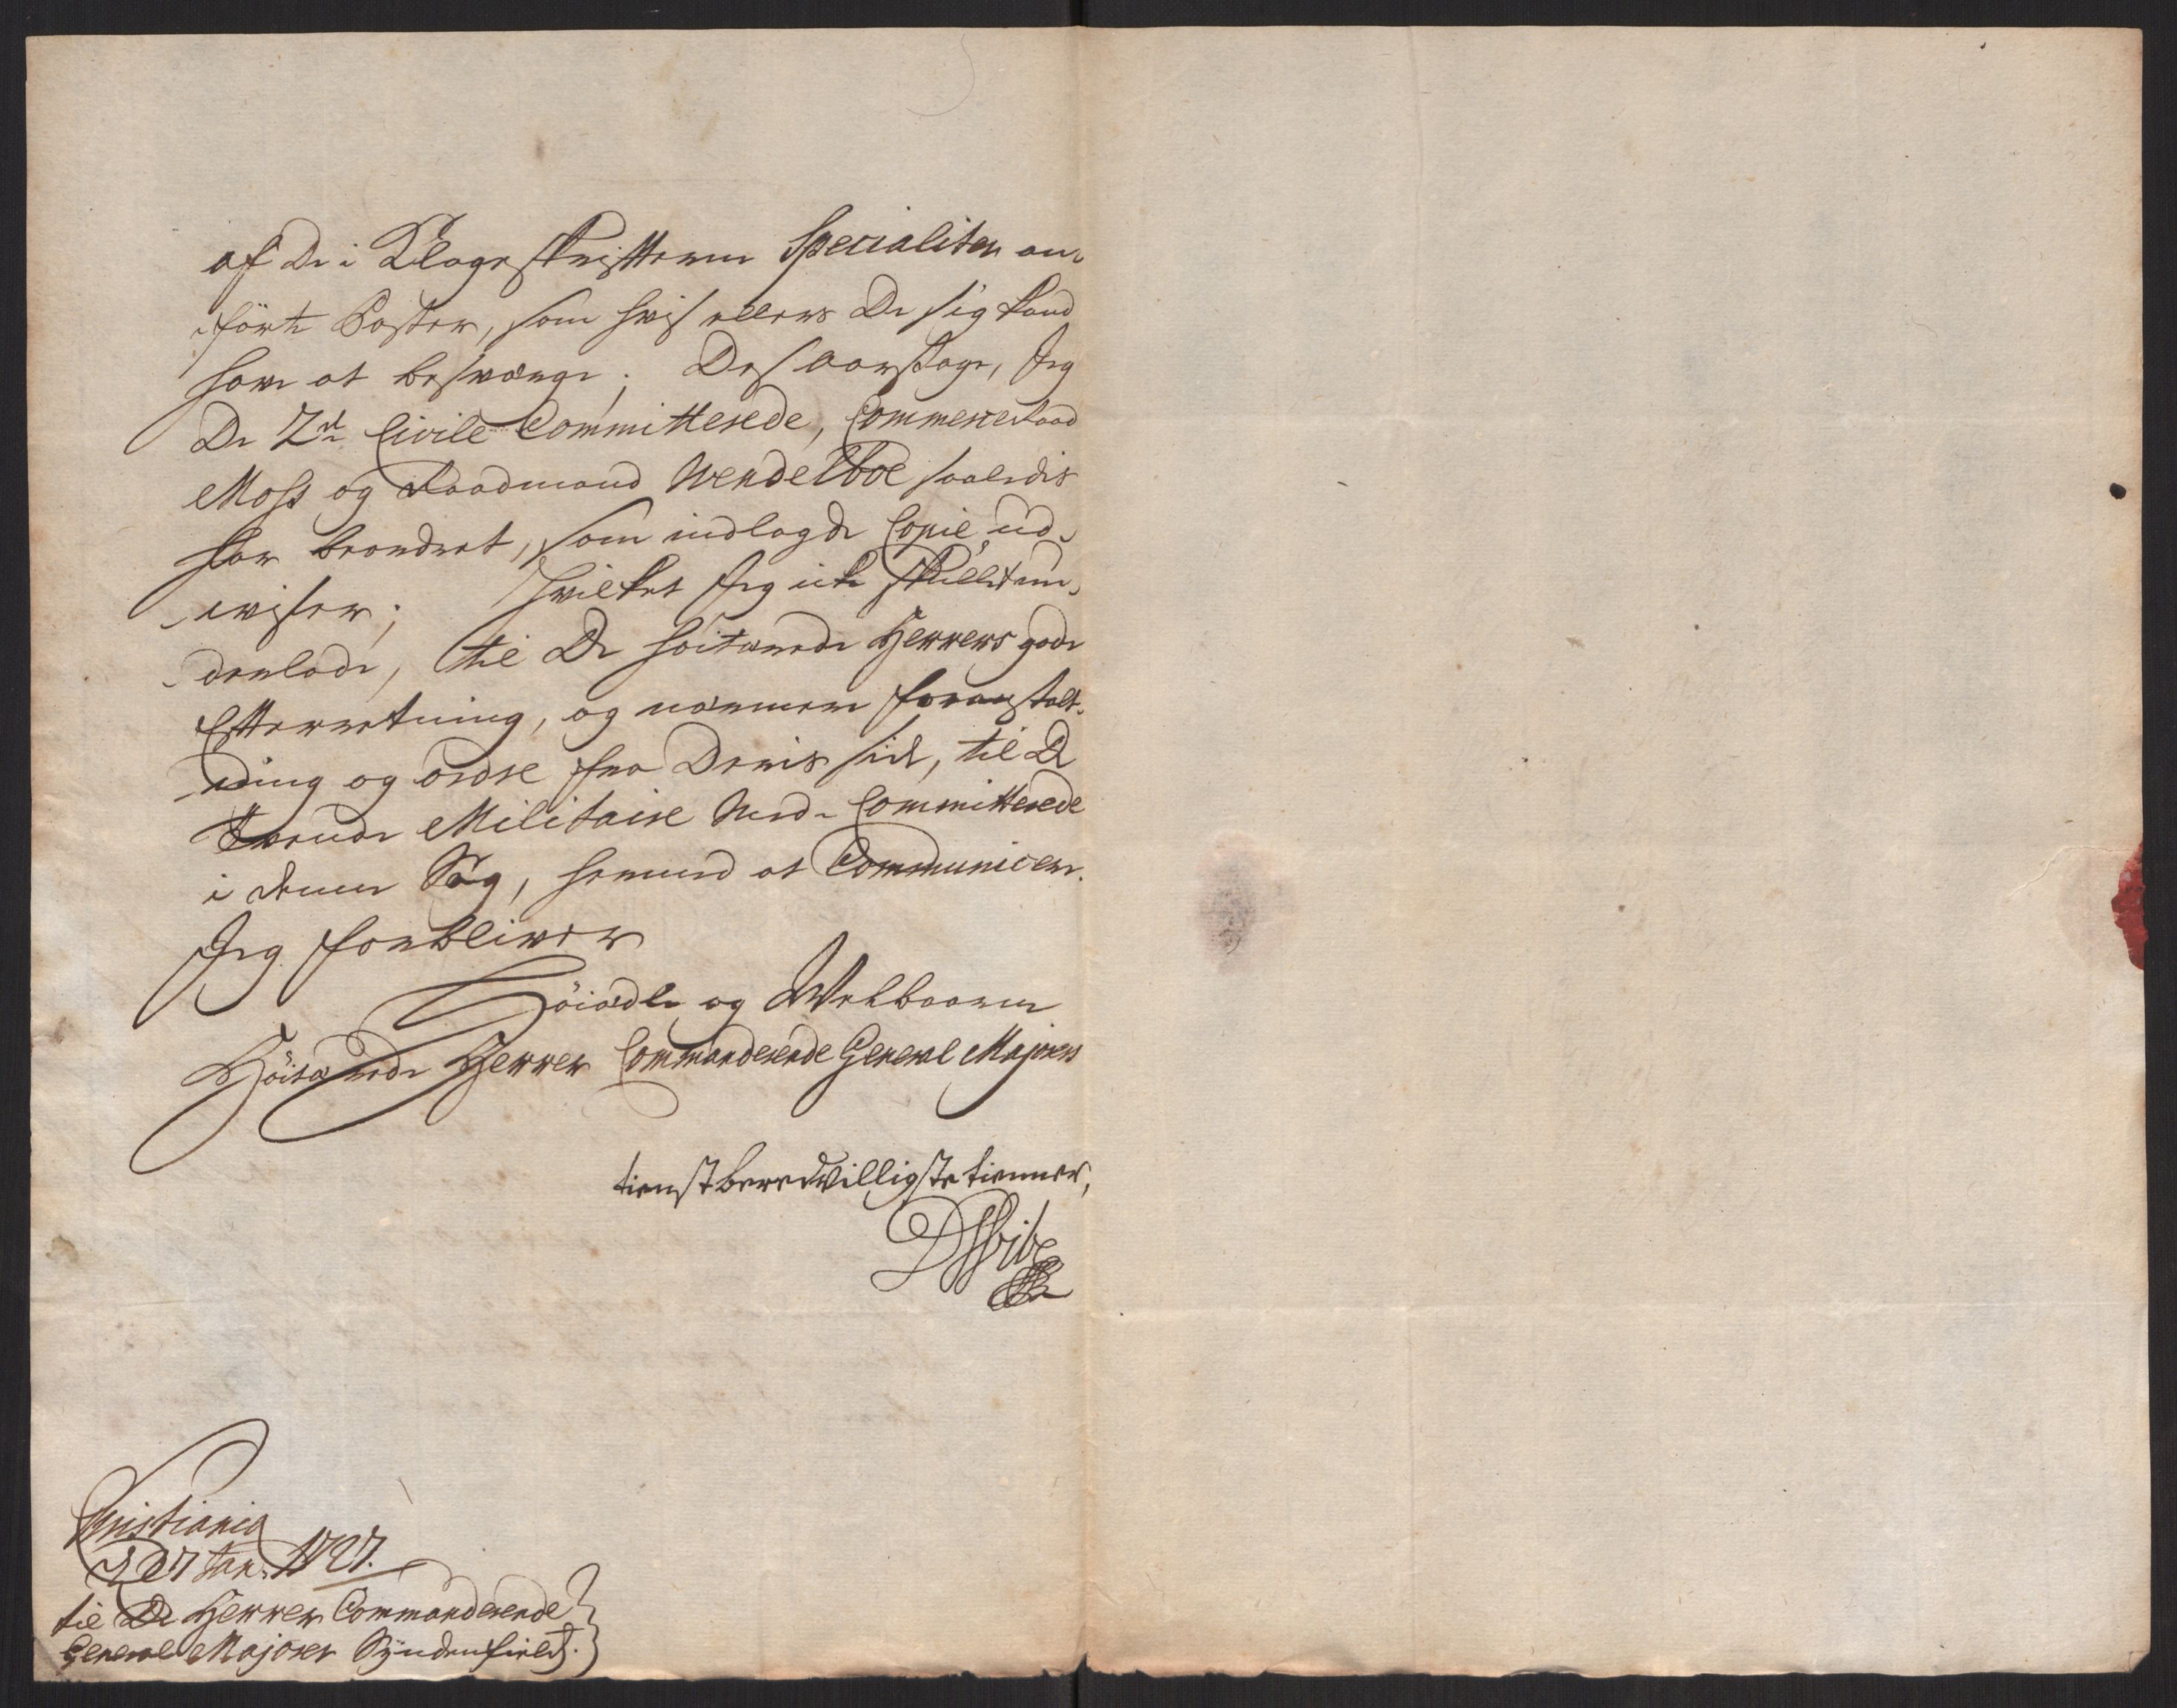 af De i Klageskrifterne Specialiter an-
førte Poster, som hvis ellers De sig kand
have at besverge; Desaarsage, Jeg
De 2de Civile Committerede, Commerceraad
Moss og Raadmand Wendelboe saaledis
har beordret, som indlagde Copie ud-
-viser; hvilket Jeg icke skulle un-
-derlade, til De höitærede Herrers gode
Efterretning, og nærmere foranstalt-
-ning og ordre fra Deris side, til De
tvende Militaire Med-Committerede
i denne Sag, hermed at Communicere.
Jeg forbliver
Höiædle og Welbaarne
Höitærede Herrer Commanderende General Majorers
tienstberedvilligste tienner,
DVibe
Christiania
d 27 Jan: 1727.
til De Herrer Commanderende
General Majorer Syndenfields.